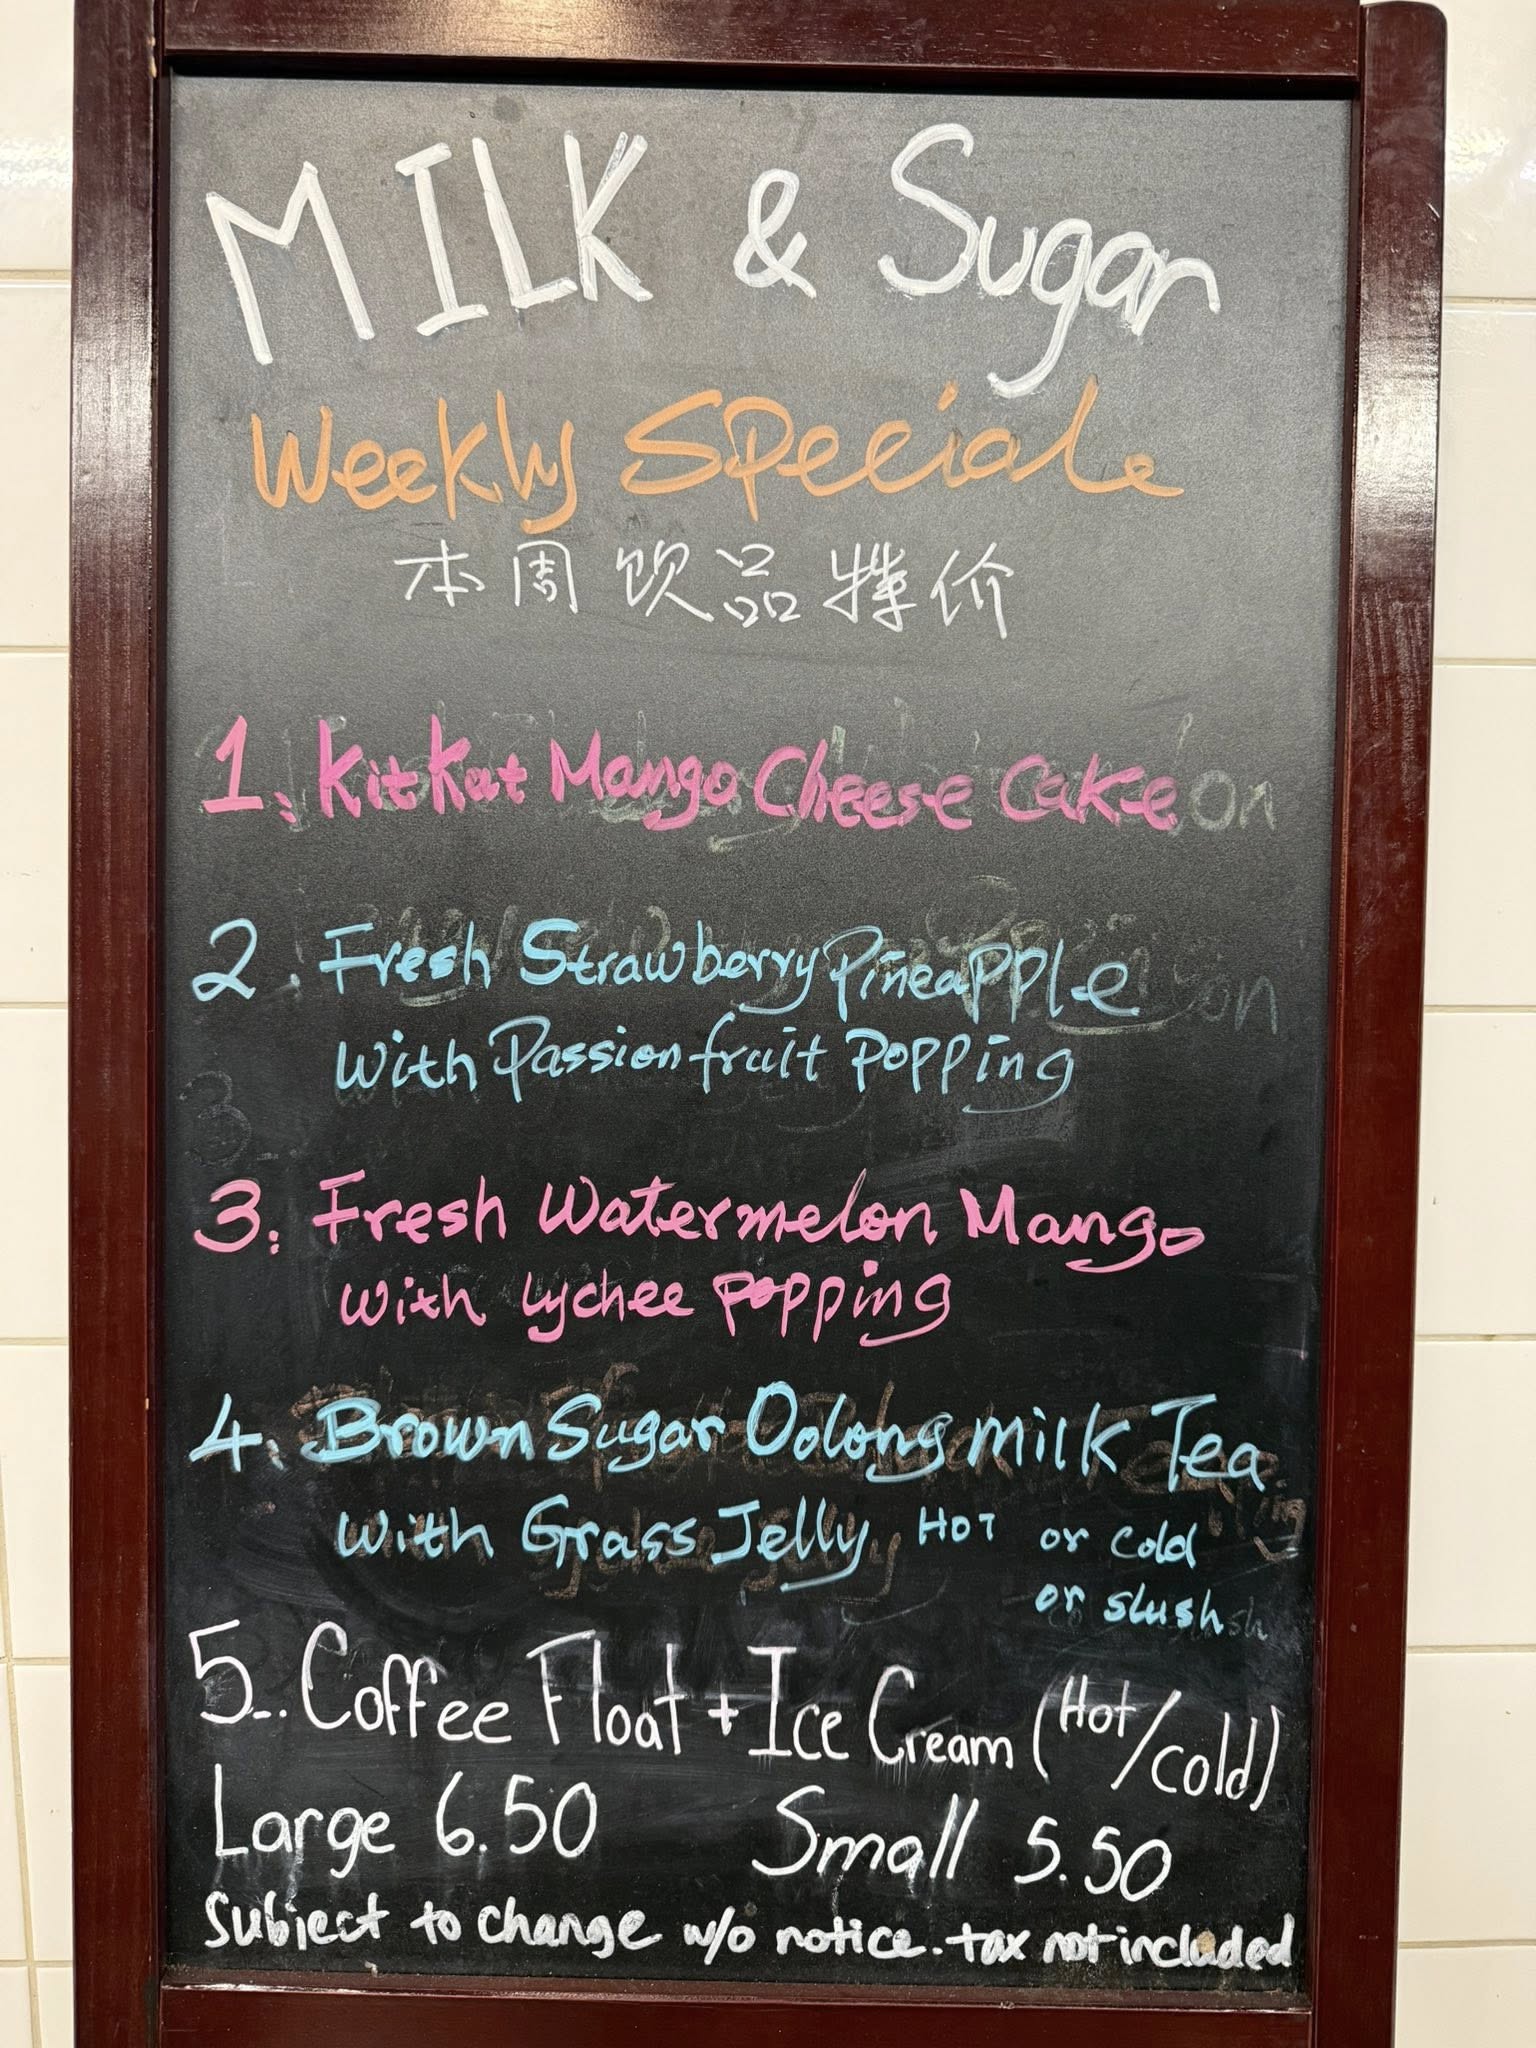 MILK & Sugar
Weekly Special
本周饮品特价
1. KitKat Mango Cheese Cake
2. Fresh Strawberry Pineapple
with Passion fruit Popping
3. Fresh Watermelon Mango
with Lychee Popping
4. Brown Sugar Oolong Milk Tea
with Grass Jelly HOT or cold
or slush
5... Coffee Float + Ice Cream (Hot/cold)
Large 6.50 Small 5.50
Subject to change w/o notice. tax not included